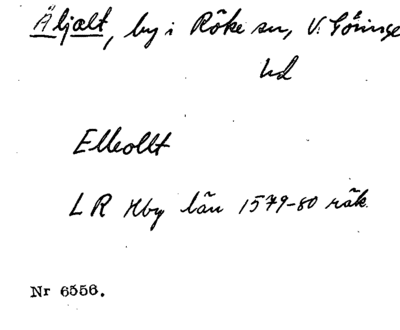 Äljalt, by i Röke sn, V. Göinge
hd
Elleollt
LR Hby län 1579-80 räk.
Nr 6556.